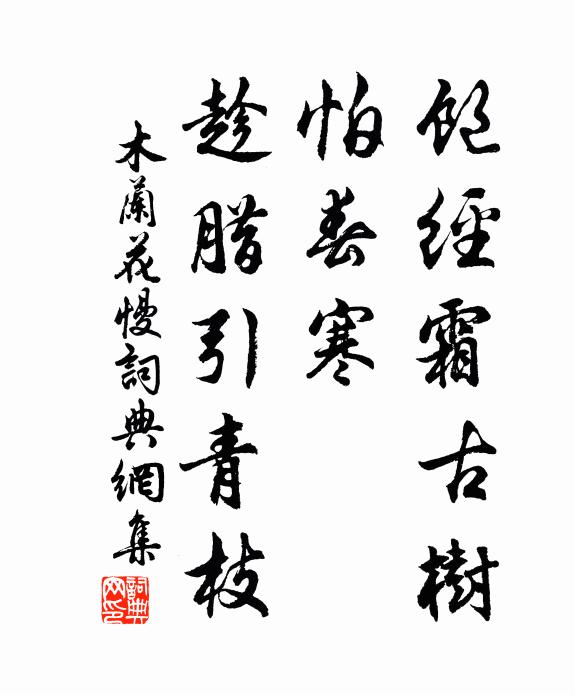 飽經霜古樹
怕春寒
趁腊引青枝
木蘭花慢詞典網集
詞典網印